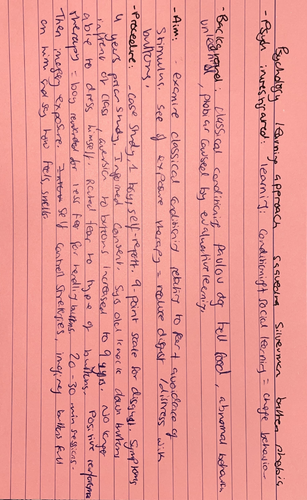 Psychology learning approach saavedra silverman button phobia
- Psych investigated: learning: conditioning & social learning = change behavior -
- Background: classical conditioning pavlov dog bell food, abnormal behavior
unlearned, phobias caused by evaluative learning.
- Aim: - examine classical conditioning relating to fear & avoidance of
stimulus. see if exposure therapy = reduce disgust / distress with
buttons.
- Procedure: - case study, 1 boy, self report. 9 point scale for disgust. Symptoms
4 years prior study. Informed consent. 5yrs old knock down buttons
infront of class, aversion to buttons increased to 9 yrs. No longer
able to dress himself. Rated fear to type of buttons. Positive reinforcement
therapy = boy rewarded for less fear for handling buttons. 20-30 min sessions.
Then imagery exposure. self control strategies, imaging buttons fall
on him and say how feels smells